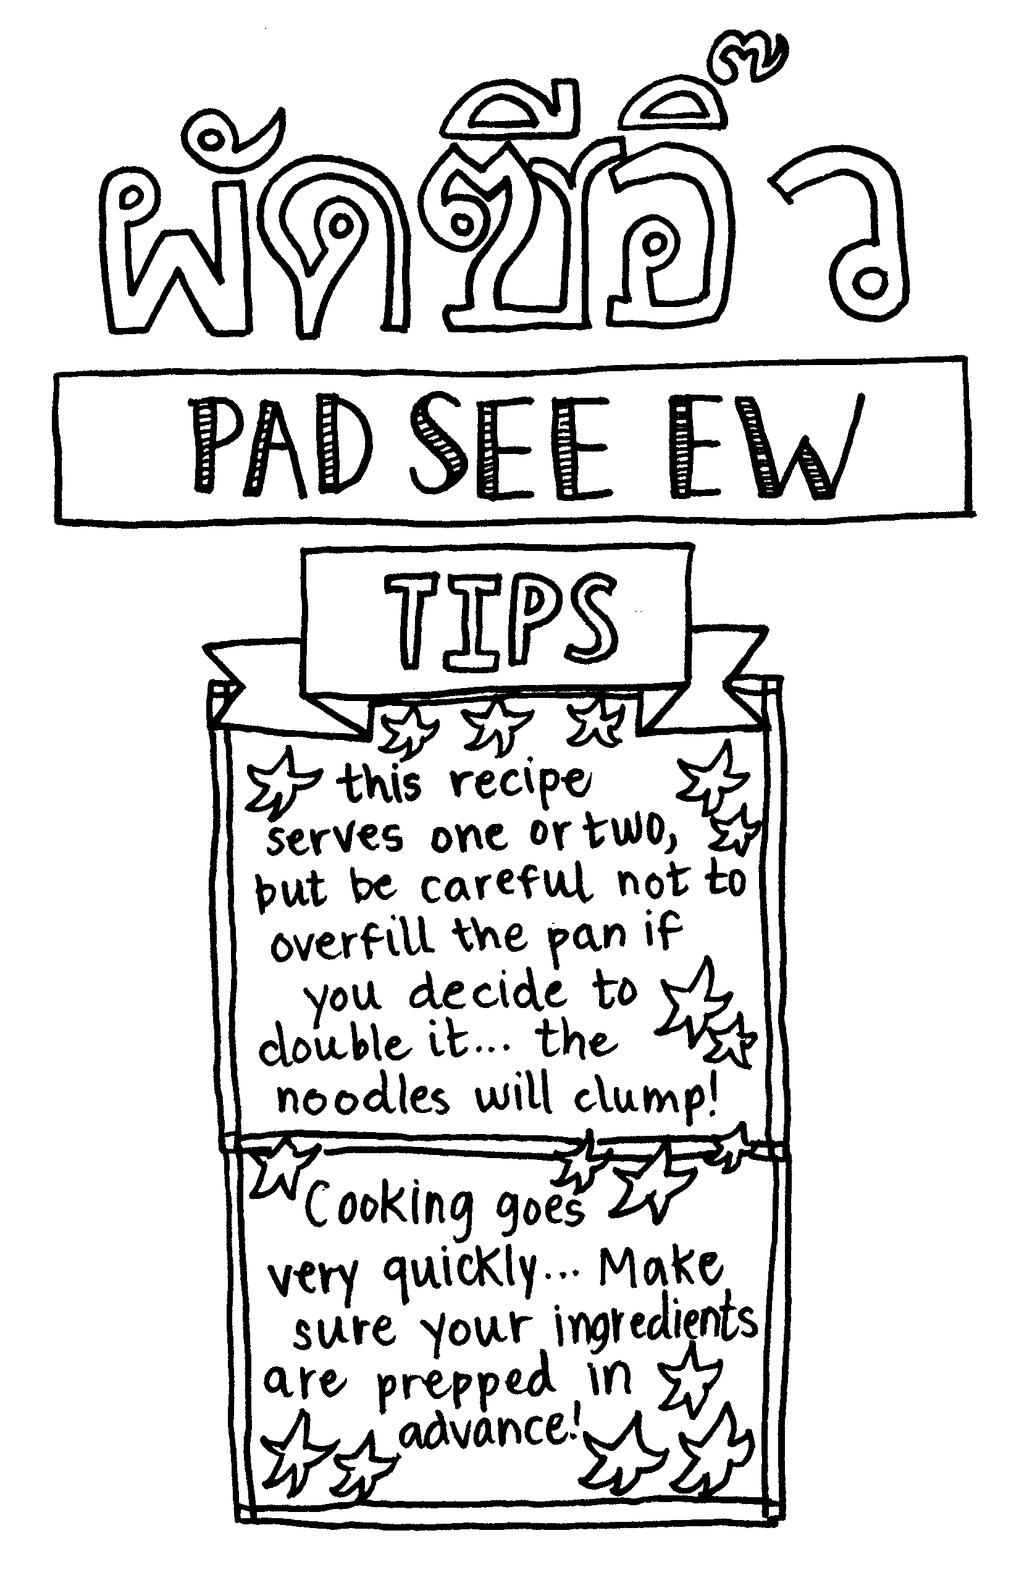 ผัดซีอิ๊ว
PAD SEE EW
TIPS
this recipe
serves one or two,
but be careful not to
overfill the pan if
you decide to
double it... the
noodles will clump!
Cooking goes
very quickly... Make
sure your ingredients
are prepped in
advance!